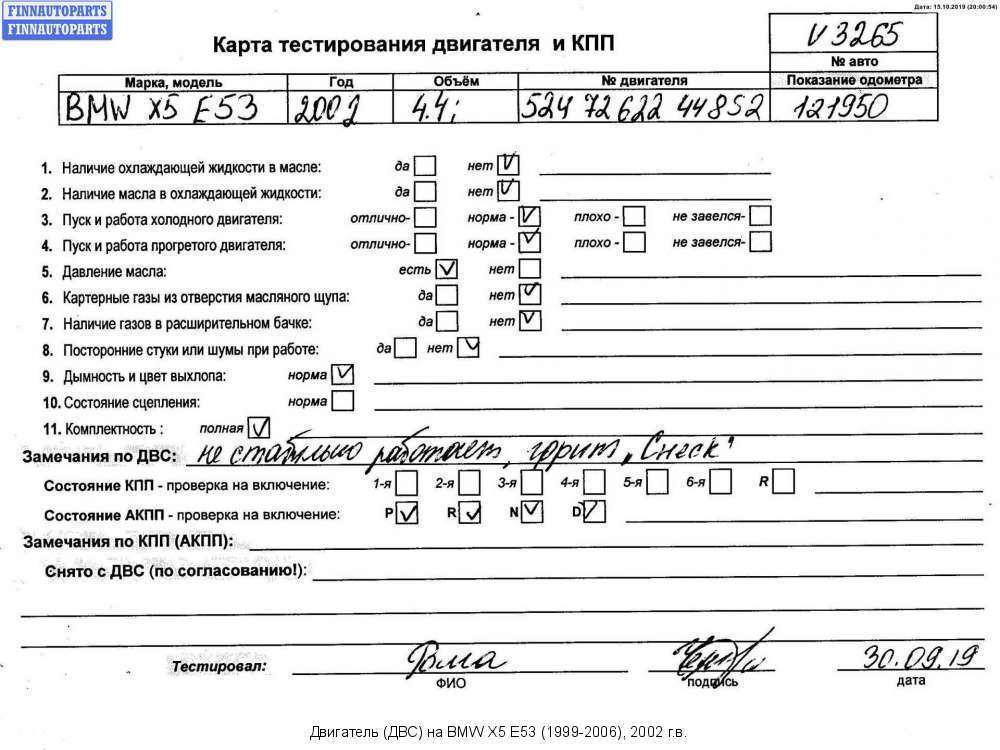 FINNAUTOPARTS
FINNAUTOPARTS
Дата: 15.10.2019 (20:00:54)
Карта тестирования двигателя и КПП
V3265
№ авто
Марка, модель Год Объём № двигателя Показание одометра
BMW X5 E53 2002 4.4i 524 72622 44852 121950
1. Наличие охлаждающей жидкости в масле: да нет
2. Наличие масла в охлаждающей жидкости: да нет
3. Пуск и работа холодного двигателя: отлично- норма - плохо - не завелся-
4. Пуск и работа прогретого двигателя: отлично- норма - плохо - не завелся-
5. Давление масла: есть нет
6. Картерные газы из отверстия масляного щупа: да нет
7. Наличие газов в расширительном бачке: да нет
8. Посторонние стуки или шумы при работе: да нет
9. Дымность и цвет выхлопа: норма
10. Состояние сцепления: норма
11. Комплектность : полная
Замечания по ДВС: не стабильно работает, горит „Chеck"
Состояние КПП - проверка на включение: 1-я 2-я 3-я 4-я 5-я 6-я R
Состояние АКПП - проверка на включение: P R N D
Замечания по КПП (АКПП):
Снято с ДВС (по согласованию!):
Тестировал: 30.09.19
ФИО подпись дата
Двигатель (ДВС) на BMW X5 E53 (1999-2006), 2002 г.в.